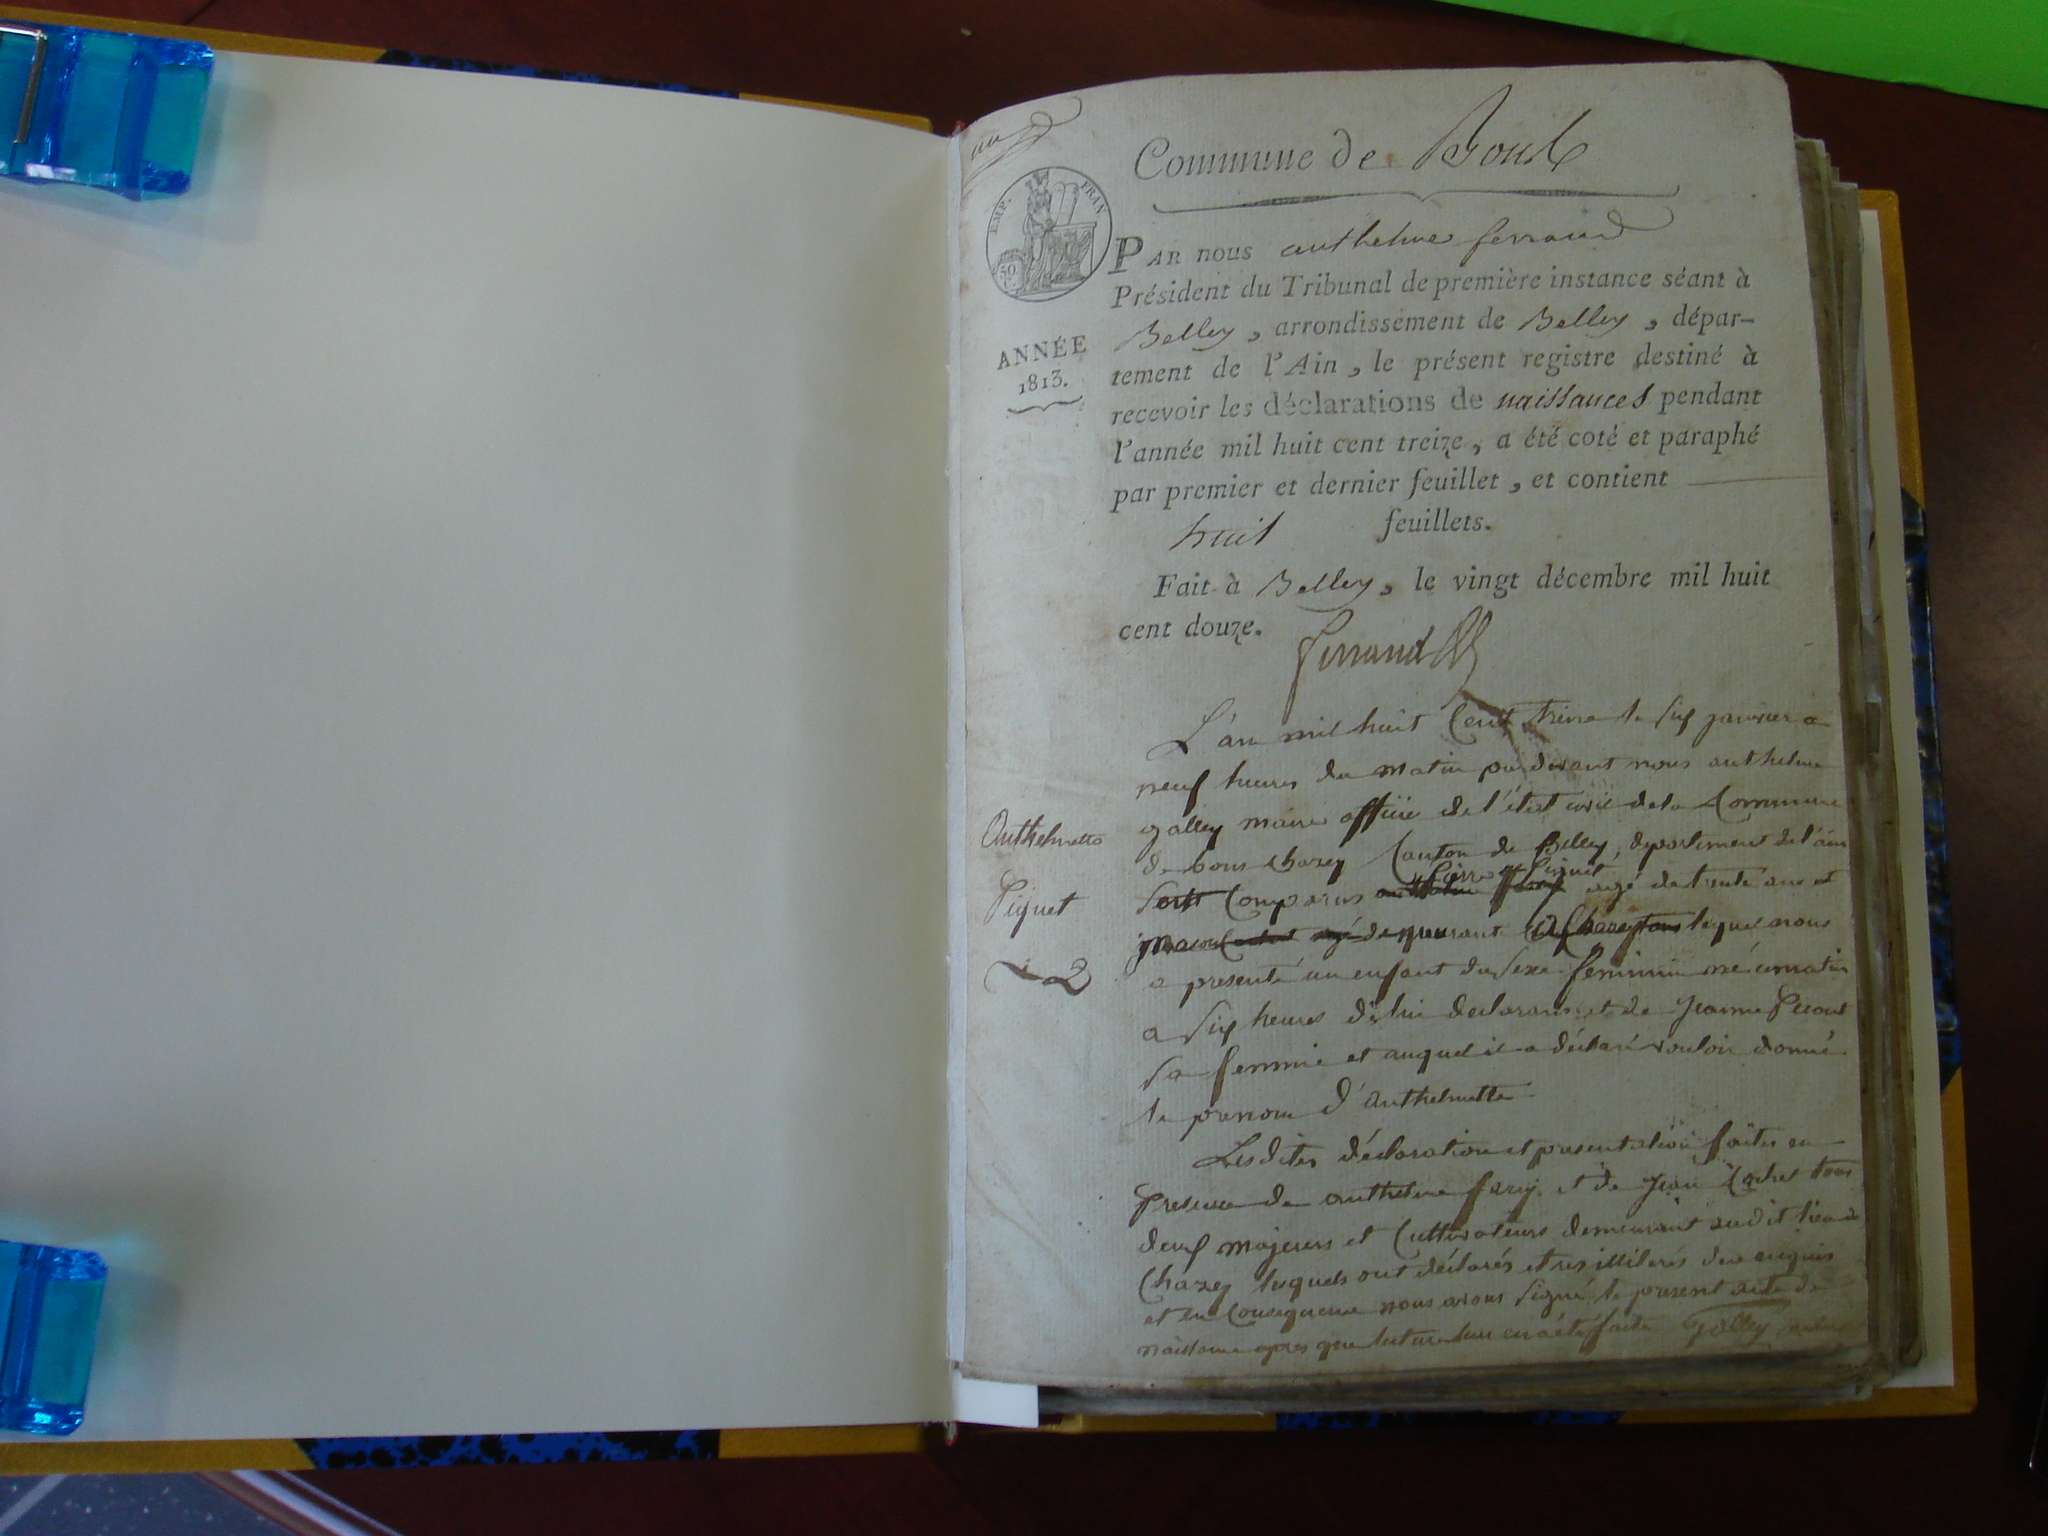 Commune de Bons
EMP. FRAN
50
C.
PAR nous anthelme ferrand
Président du Tribunal de première instance séant à
Belley, arrondissement de Belley, dépar-
tement de l'Ain, le présent registre destiné à
recevoir les déclarations de naissances pendant
l'année mil huit cent treize, a été coté et paraphé
par premier et dernier feuillet, et contient
huit feuillets.
Fait à Belley, le vingt décembre mil huit
cent douze.
ferrand
ANNÉE
1813.
Anthelmette
Piquet
L'an mil huit Cent treize le six janvier a
neuf heures du matin par devant nous anthelme
galley maire officier de l'état civil de la Commune
de bons chazey Canton de Belley, departement de l'ain
Comparus Pierre Piquet agé de trente ans et
demeurant lequel nous
a presenté un enfant du sexe feminin né ce matin
a six heures de lui declarant et de Jeanne
sa femme et auquel il a déclaré vouloir donné
le prenom d'anthelmette
Lesdites déclaration et presentation faites en
Presence de anthelme et de Jean tous
deux majeurs et Cultivateurs demeurant audit lieu de
Chazey lesquels ont déclarés etres illiterés de ce enquis
et en Consequence nous avons signé le present acte de
naissance apres que lecture leur en a été faite Galley